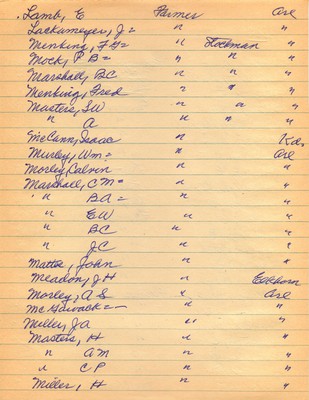 Lamb, E Farmer Ore
Lackumeyer, J = " "
Menking, F H = " Stockman "
Mock, P B = " " "
Marshall, B C " " "
Menking, Fred " " "
Masters, S W " " "
" A " " "
McCann, Isaac " Ka.
Murley, Wm = " Ore
Morley, Calvin " "
Marshall, C M = " "
" B A = " "
" E W " "
" B C " "
" J C " "
Matta, John " "
Meadon, J H " Elkhorn
Morley, A S " Ore
" "
Miller, J A " "
Masters, H " "
" A M " "
" C P " "
Miller, H " "